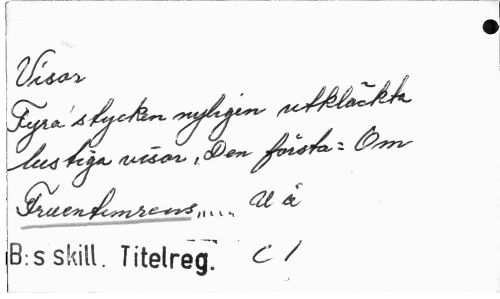 Visor
Fyra stycken nyligen utkläckta
lustiga visor, Den första: Om
Fruentimrens,.... U å
B:s skill. Titelreg. C 1